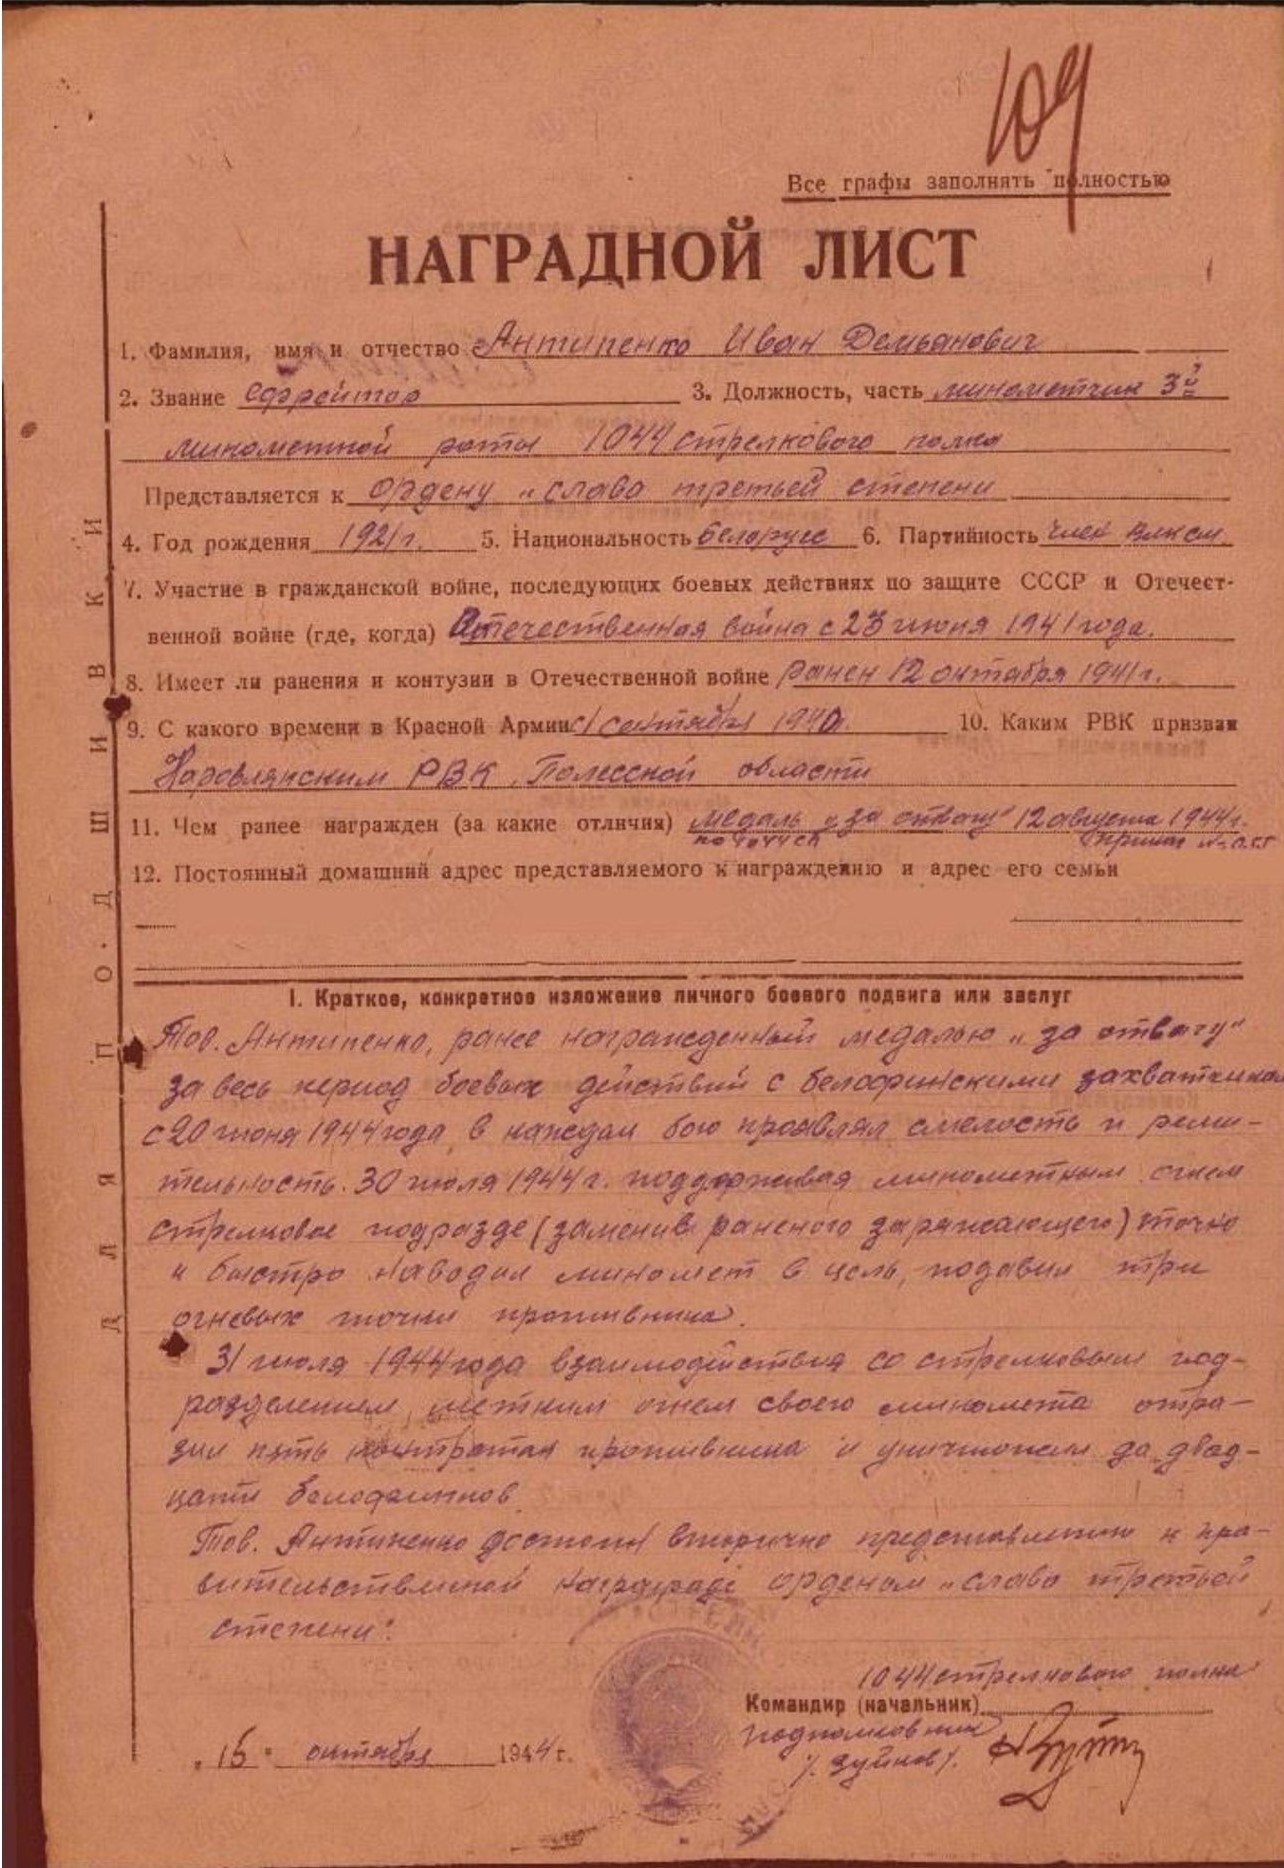 109
Все графы заполнять полностью
НАГРАДНОЙ ЛИСТ
1. Фамилия, имя и отчество Антипенко Иван Демьянович
2. Звание Ефрейтор 3. Должность, часть минометчик 3й
минометной роты 1044 стрелкового полка
Представляется к ордену „слава третьей степени
4. Год рождения 1921 г. 5. Национальность белорус 6. Партийность член влксм.
7. Участие в гражданской войне, последующих боевых действиях по защите СССР и Отечест-
венной войне (где, когда) Отечественная война с 23 июня 1941 года.
8. Имеет ли ранения и контузии в Отечественной войне ранен 12 октября 1941 г.
9. С какого времени в Красной Армии с 1 сентября 1940г. 10. Каким РВК призван
Наровлянским РВК, Полесской области
11. Чем ранее награжден (за какие отличия) медаль „за отвагу" 12 августа 1944г.
по 1044 СП приказ №
12. Постоянный домашний адрес представляемого к награждению и адрес его семьи
I. Краткое, конкретное изложение личного боевого подвига или заслуг
Тов. Антипенко, ранее награжденный медалью „за отвагу"
за весь период боевых действий с белофинскими захватчиками
с 20 июня 1944 года, в каждом бою проявлял смелость и реши-
тельность. 30 июля 1944 г. поддерживая минометным огнем
стрелковое подразде (заменив раненого заряжающего) точно
и быстро наводил миномет в цель, подавил три
огневых точки противника.
31 июля 1944 года взаимодействия со стрелковым под-
разделением, метким огнем своего миномета отра-
зил пять контратак противника и уничтожил до двад-
цати белофиннов.
Тов. Антипенко достоин вторично представлению к пра-
вительственной награде орденом „слава третьей
степени".
1044 стрелкового полка
Командир (начальник)
подполковник
/. Зуйков /.
„15" октября 1944 г.
ДЛЯ ПОДШИВКИ